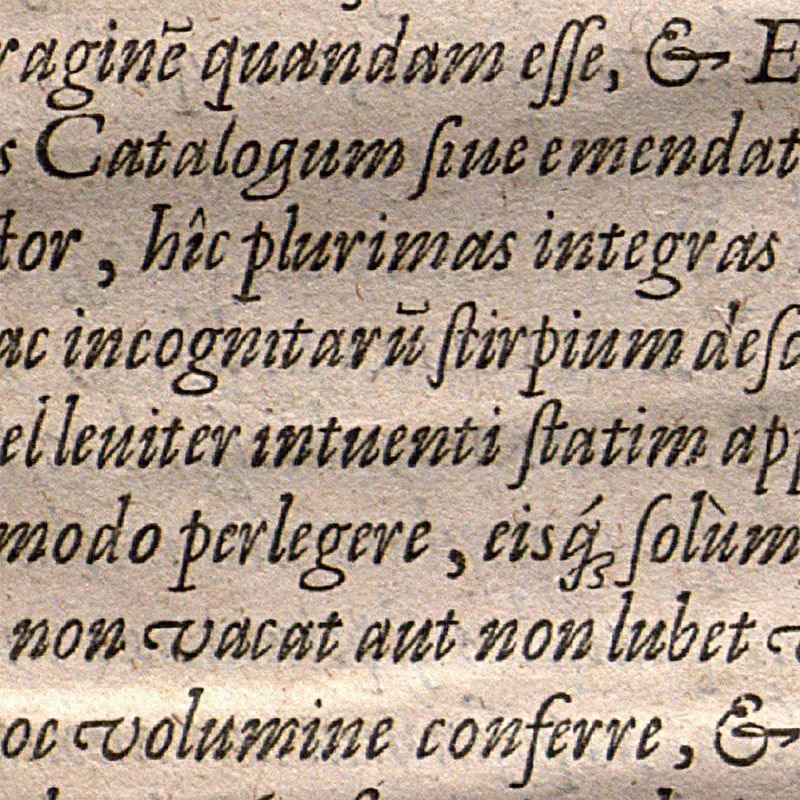 raginē quandam eſſe, & E
s Catalogum ſiue emendat
tor, hîc plurimas integras
ac incognitarū ſtirpium deſc
el leuiter intuenti ſtatim app
modo perlegere, eisq́ꝫ ſolùm
non vacat aut non lubet v
oc volumine conferre, &